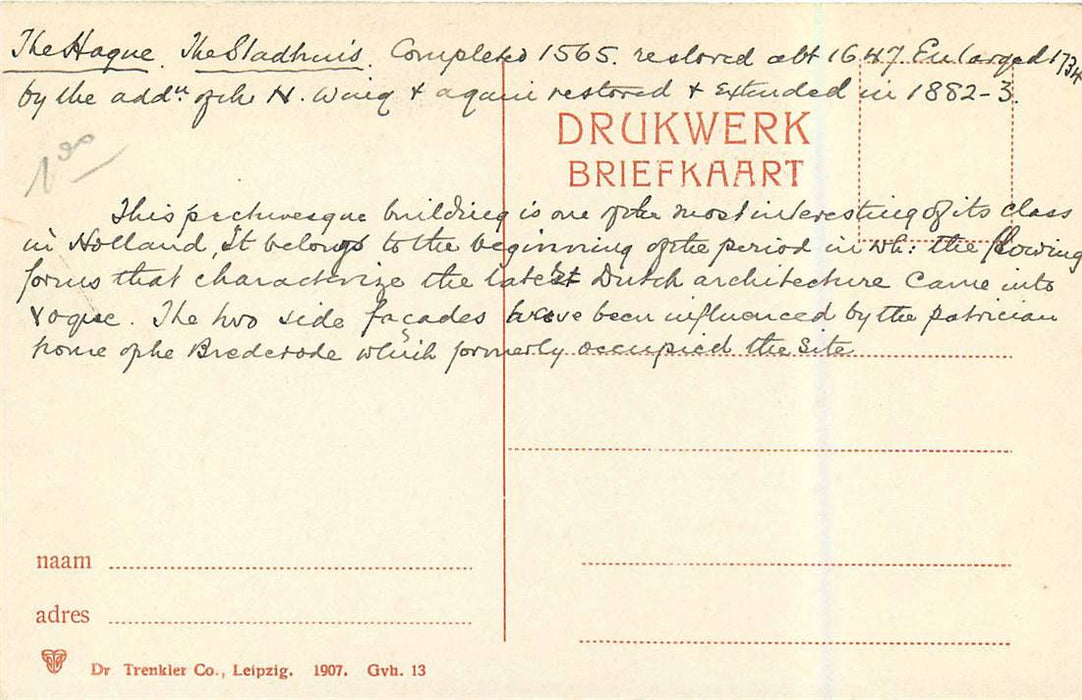 The Hague. The Stadhuis. Completed 1565. restored abt 1647 Enlarged 1734
by the addn of the N. Wing & again restored & extended in 1882-3.
DRUKWERK
BRIEFKAART
1.90
This picturesque building is one of the most interesting of its class
in Holland It belongs to the beginning of the period in wh: the flowing
forms that characterize the latest Dutch architecture came into
vogue. The two side façades have been influenced by the patrician
home of the Brederode which formerly occupied the site
naam
adres
Dr. Trenkler Co., Leipzig. 1907. Gvh. 13